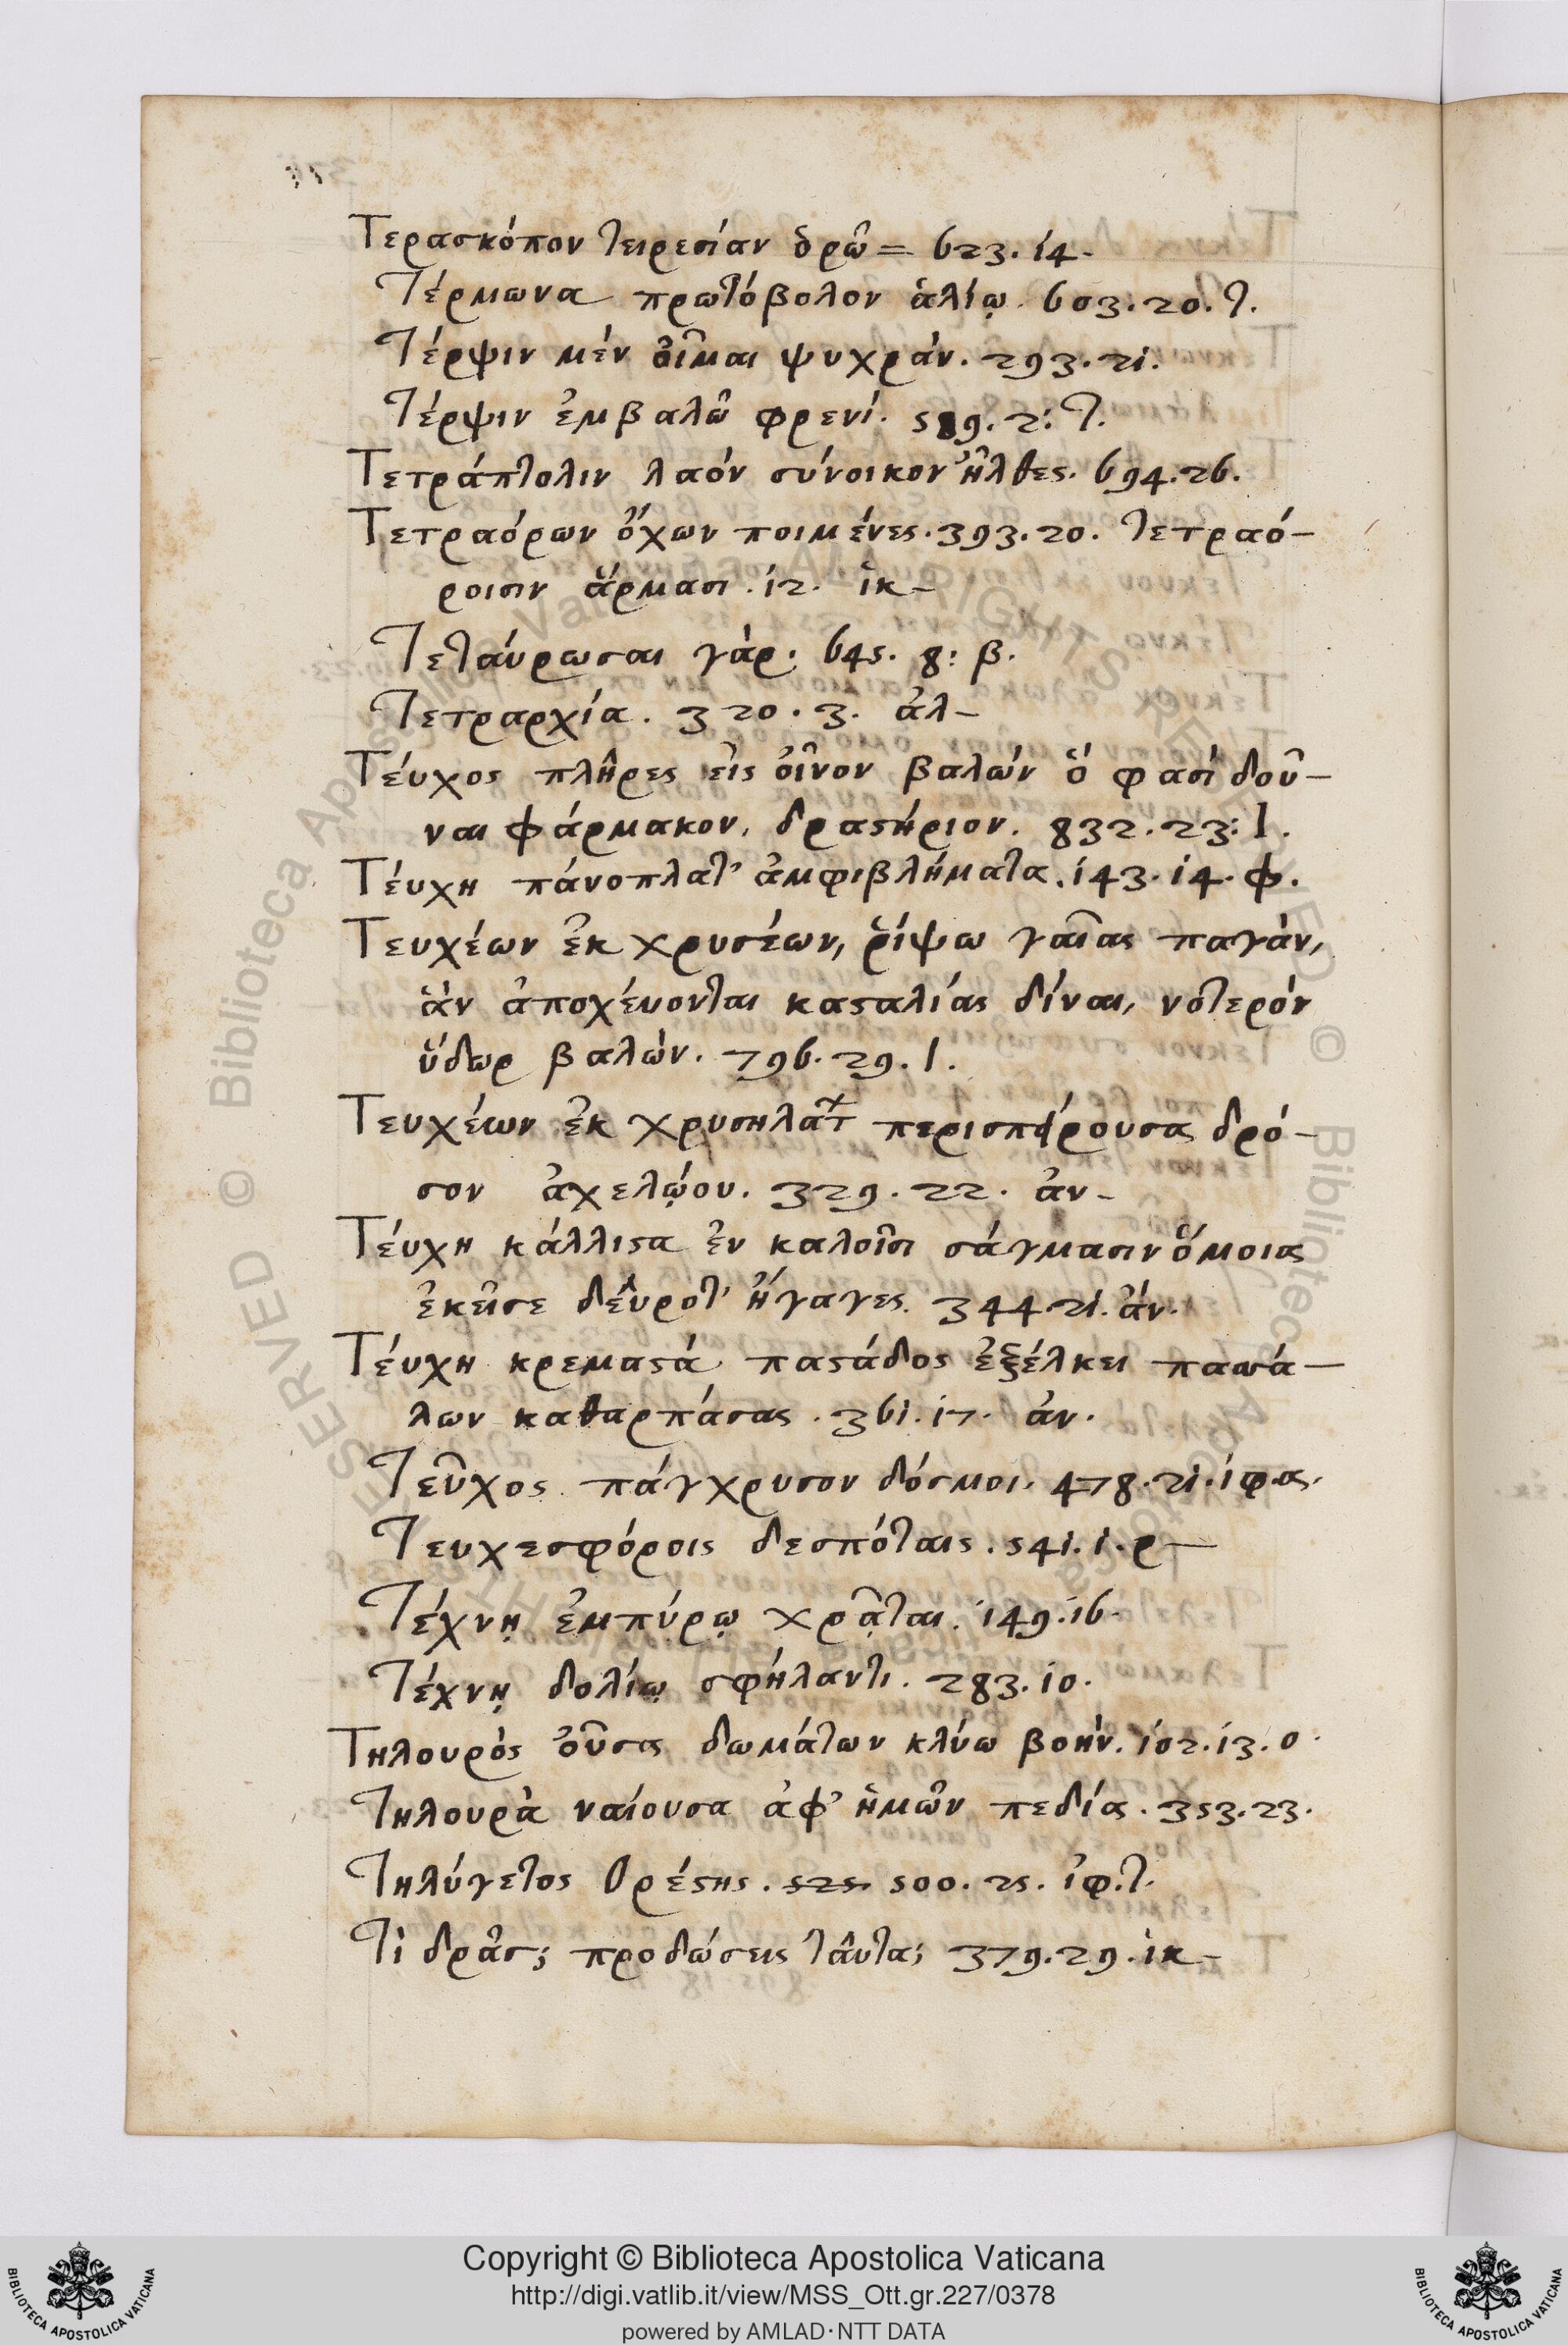 Τερασκόπον τειρεσίαν ὁρῶ = 623. 14.
Τέρμωνα πρωτόβολον ἁλίῳ. 603. 20. τ.
Τέρψιν μὲν οἶμαι ψυχράν. 293. 21.
Τέρψιν ἐμβαλῶ φρενί. 589. 2: τ.
Τετράπτολιν λαὸν σύνοικον ἦλθες. 694. 26.
Τετραόρων ὄχων ποιμένες. 393. 20. τετραό-
ροισιν ἅρμασι. 12. ἱκ-
Τεταύρωσαι γάρ. 645. 8: β.
Τετραρχία. 320. 3. ἀλ-
Τεύχος πλῆρες εἰς οἶνον βαλών ὅ φασὶ δοῦ-
ναι φάρμακον, δραστήριον. 832. 23: Ι.
Τεύχη πάνοπλατ' ἀμφιβλήματα. 143. 14. φ.
Τευχέων ἐκ χρυσέων, ῥίψω γαῖας παγάν,
ἃν ἀποχέυονται κασταλίας δίναι, νοτερόν
ὕδωρ βαλών. 796. 29. Ι.
Τευχέων ἐκ χρυσηλάτ δρό-
σον ἀχελῴου. 329. 22. ἀν-
Τεύχη κάλλιστα ἐν καλοῖσι σάγμασιν ὅμοια
ἐκεῖσε δεῦροτ' ἤγαγες. 344 21. ἀν.
Τεύχη κρεμαστά παστάδος ἐξέλκει πασσά-
λων καθαρπάσας. 361. 17. ἀν.
Τεῦχος πάγχρυσον δόσμοι. 478. 21. ἰφ.α.
Τευχεσφόροις δεσπόταις. 541. 1. ρ-
Τέχνῃ ἐμπύρῳ χρᾶται. 149. 16.
Τέχνῃ δολίῳ σφήλαντι. 283. 10.
Τηλουρὸς οὖσα δωμάτων κλύω βοήν. 102. 13. ο.
Τηλουρὰ ναίουσα ἀφ' ἡμῶν πεδία. 353. 23.
Τηλύγετος Ορέστης. 525. 500. 25. ἰφ.τ.
Τὶ δρᾶσ; προδώσεις ταῦτα; 379. 29. ἱκ-
Copyright © Biblioteca Apostolica Vaticana
http://digi.vatlib.it/view/MSS_Ott.gr.227/0378
powered by AMLAD·NTT DATA